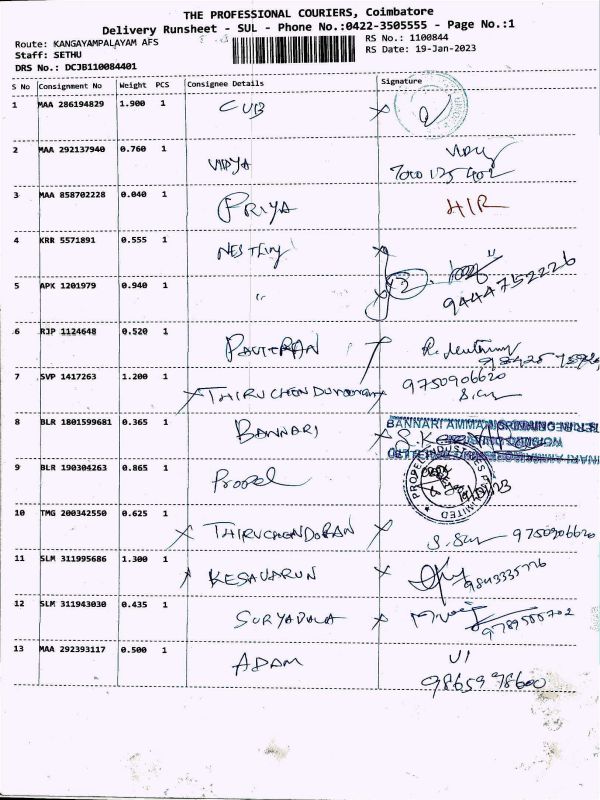 THE PROFESSIONAL COURIERS, Coimbatore
Delivery Runsheet - SUL - Phone No.:0422-3505555 - Page No.:1
Route: KANGAYAMPALAYAM AFS
RS No.: 1100844
Staff: SETHU
RS Date: 19-Jan-2023
DRS No.: DCJB110084401
S No Consignment No Weight PCS Consignee Details Signature
1 MAA 286194829 1.900 1 CUB
2 MAA 292137940 0.760 1 VIDYA
3 MAA 858702228 0.040 1 PRIYA H/R
4 KRR 5571891 0.555 1
5 APK 1201979 0.940 1 " 9444752226
6 RJP 1124648 0.520 1
7 SVP 1417263 1.200 1 9750906620
8 BLR 1801599681 0.365 1 BANNARI BANNARI AMMAN
9 BLR 190304263 0.865 1 Propel
10 TMG 200342550 0.625 1 THIRUCHENDURAN 9750906620
11 SLM 311995686 1.300 1 KESAVARUN
12 SLM 311943030 0.435 1
13 MAA 292393117 0.500 1 ADAM
9865998600